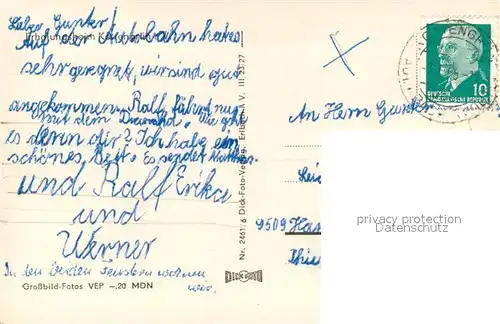 Lieber Gunter!
Erholungsheim
Auf der Autobahn hat es
sehr geregnet, wir sind gut
angekommen. Ralf fährt nur
mit dem Wie geht
es denn dir? Ich habe ein
schönes Bett. Es sendet
und Ralf Erika
und
Werner
In den beiden Fenstern wohnen
wir.
Großbild-Fotos VEP –,20 MDN
Nr. 2461/6 Dick-Foto-Verlag, Erlbach i. V. III 23 27
DEUTSCHE
DEMOKRATISCHE REPUBLIK
10
An Herrn Gunter
9509
privacy protection
Datenschutz